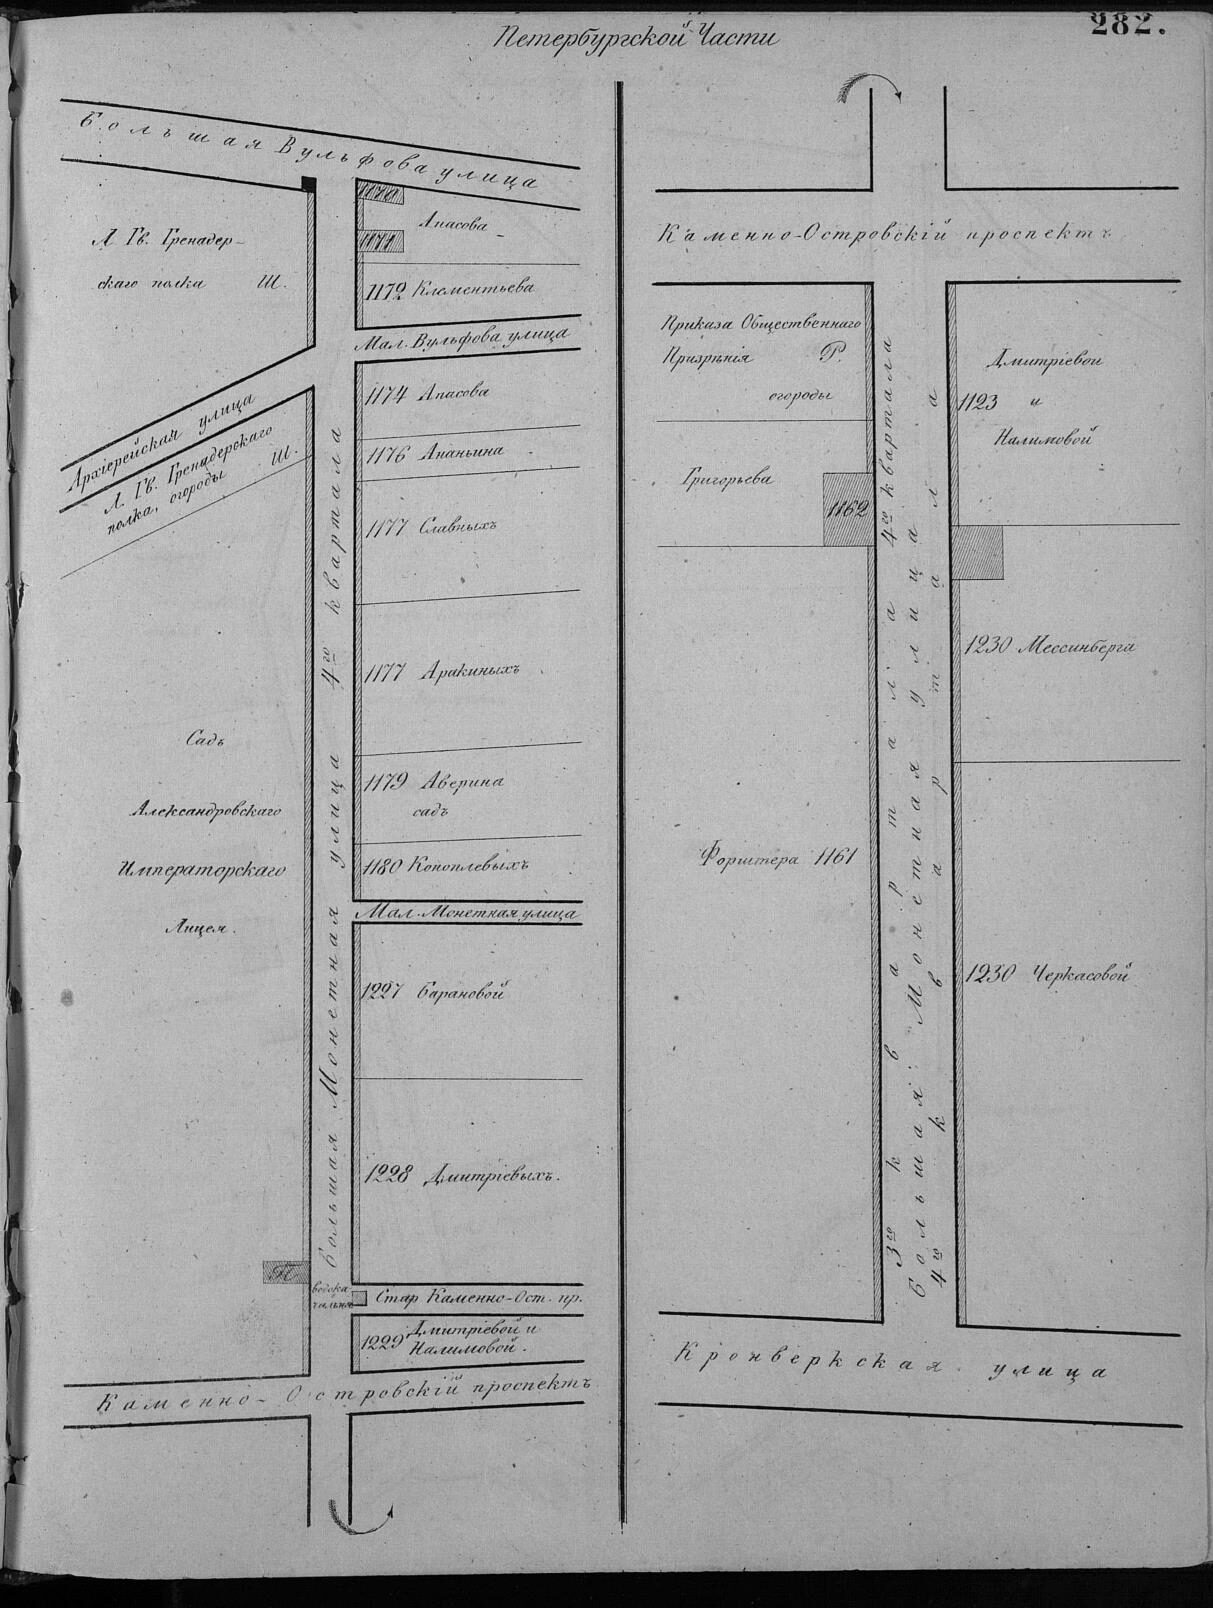 282.
Петербургской Части
Большая Вульфова улица
Л Гв. Гренадер-
скаго полка Ш.
1170
Апасова
1171
1172 Клементьева
Мал. Вульфова улица
Архіерейская улица
Л. Гв. Гренадерскаго
полка, огороды Ш.
1174 Апасова
1176 Ананьина
1177 Славныхъ
1177 Аракиныхъ
1179 Аверина
садъ
1180 Коноплевыхъ
Мал. Монетная улица
Садъ
Александровскаго
Императорскаго
Лицея.
Большая Монетная улица 4го квартала
1227 Барановой
1228 Дмитріевыхъ.
П
водока
чальня
Стар Каменно-Ост. пр.
1229 Дмитріевой и
Налимовой.
Каменно-Островскій проспектъ
Каменно-Островскій проспектъ
Приказа Общественнаго
Призрѣнія Р.
огороды
Григорьева
1162
Форштера 1161
3го квартала 4го квартала
Большая Монетная улица
4го квартал а
Дмитріевои
1123 и
Налимовой
1230 Мессинберга
1230 Черкасовой
Кронверкская улица